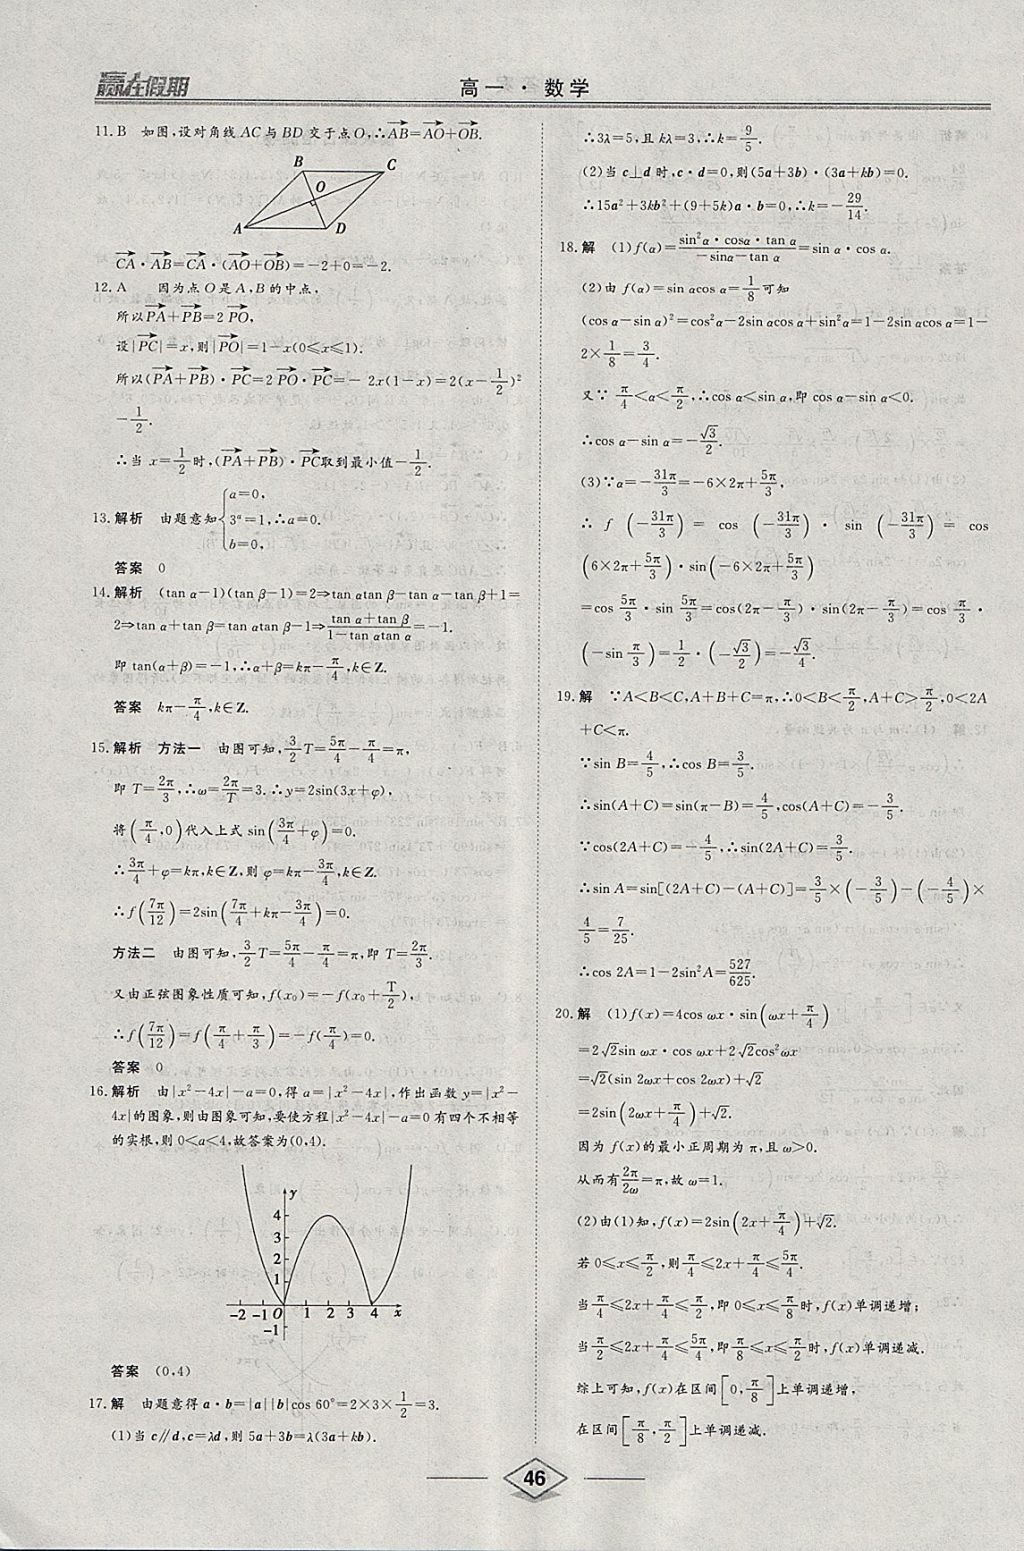 赢在假期
高一·数学
11.B 如图,设对角线 AC 与 BD 交于点 O,∴AB→=AO→+OB→.
B
C
O
A
D
CA→·AB→=CA→·(AO→+OB→)=-2+0=-2.
12.A 因为点 O 是 A,B 的中点,
所以PA→+PB→=2 PO→,
设|PC→|=x,则|PO→|=1-x(0≤x≤1).
所以(PA→+PB→)·PC→=2 PO→·PC→=- 2x(1-x)=2(x-1/2)²
-1/2.
∴当 x=1/2时,(PA→+PB→)·PC→取到最小值-1/2.
13.解析 由题意知{a=0, 3ᵃ=1, b=0,∴a=0.
答案 0
14.解析 (tan α-1)(tan β-1)=2⇒tan αtan β-tan α-tan β+1=
2⇒tan α+tan β=tan αtan β-1⇒(tan α+tan β)/(1-tan αtan α)=-1.
即 tan(α+β)=-1,∴α+β=kπ-π/4,k∈Z.
答案 kπ-π/4,k∈Z.
15.解析 方法一 由图可知,3/2T=5π/4-π/4=π,
即 T=2π/3,∴ω=2π/T=3.∴y=2sin(3x+φ),
将(π/4,0)代入上式 sin(3π/4+φ)=0.
∴3π/4+φ=kπ,k∈Z,则 φ=kπ-3π/4,k∈Z.
∴f(7π/12)=2sin(7π/4+kπ-3π/4)=0.
方法二 由图可知,3/2T=5π/4-π/4=π,即 T=2π/3.
又由正弦图象性质可知,f(x₀)=-f(x₀+T/2),
∴f(7π/12)=f(π/4+π/3)=-f(π/4)=0.
答案 0
16.解析 由|x²-4x|-a=0,得 a=|x²-4x|,作出函数 y=|x²-
4x|的图象,则由图象可知,要使方程|x²-4x|-a=0 有四个不相等
的实根,则 0<a<4,故答案为(0,4).
y
4
3
2
1
-2 -1 O 1 2 3 4 x
-1
答案 (0,4)
17.解 由题意得 a·b=|a||b|cos 60°=2×3×1/2=3.
(1)当 c∥d,c=λd,则 5a+3b=λ(3a+kb).
∴3λ=5,且 kλ=3,∴k=9/5.
(2)当 c⊥d 时,c·d=0,则(5a+3b)·(3a+kb)=0.
∴15a²+3kb²+(9+5k)a·b=0,∴k=-29/14.
18.解 (1)f(α)=(sin²α·cosα·tan α)/(-sinα-tan α)=sin α·cos α.
(2)由 f(α)=sin αcos α=1/8可知
(cos α-sin α)²=cos²α-2sin αcos α+sin²α=1-2sin αcos α=1-
2×1/8=3/4.
又∵π/4<α<π/2,∴cos α<sin α,即 cos α-sin α<0.
∴cos α-sin α=-√3/2.
(3)∵α=-31π/3=-6×2π+5π/3,
∴ f (-31π/3) = cos (-31π/3) · sin (-31π/3) = cos
(6×2π+5π/3)·sin(-6×2π+5π/3)
=cos 5π/3·sin 5π/3=cos(2π-π/3)·sin(2π-π/3)=cos π/3·
(-sin π/3)=1/2·(-√3/2)=-√3/4.
19.解 ∵A<B<C,A+B+C=π,∴0<B<π/2,A+C>π/2,0<2A
+C<π.
∵sin B=4/5,∴cos B=3/5.
∴sin(A+C)=sin(π-B)=4/5,cos(A+C)=-3/5.
∵cos(2A+C)=-4/5,∴sin(2A+C)=3/5.
∴sin A=sin[(2A+C)-(A+C)]=3/5×(-3/5)-(-4/5)×
4/5=7/25.
∴cos 2A=1-2sin²A=527/625.
20.解 (1)f(x)=4cos ωx·sin(ωx+π/4)
=2√2sin ωx·cos ωx+2√2cos²ωx
=√2(sin 2ωx+cos 2ωx)+√2
=2sin(2ωx+π/4)+√2.
因为 f(x)的最小正周期为 π,且 ω>0.
从而有2π/2ω=π,故 ω=1.
(2)由(1)知,f(x)=2sin(2x+π/4)+√2.
若 0≤x≤π/2,则π/4≤2x+π/4≤5π/4.
当π/4≤2x+π/4≤π/2,即 0≤x≤π/8时,f(x)单调递增;
当π/2≤2x+π/4≤5π/4,即π/8≤x≤π/2时,f(x)单调递减.
综上可知,f(x)在区间[0,π/8]上单调递增,
在区间[π/8,π/2]上单调递减.
46